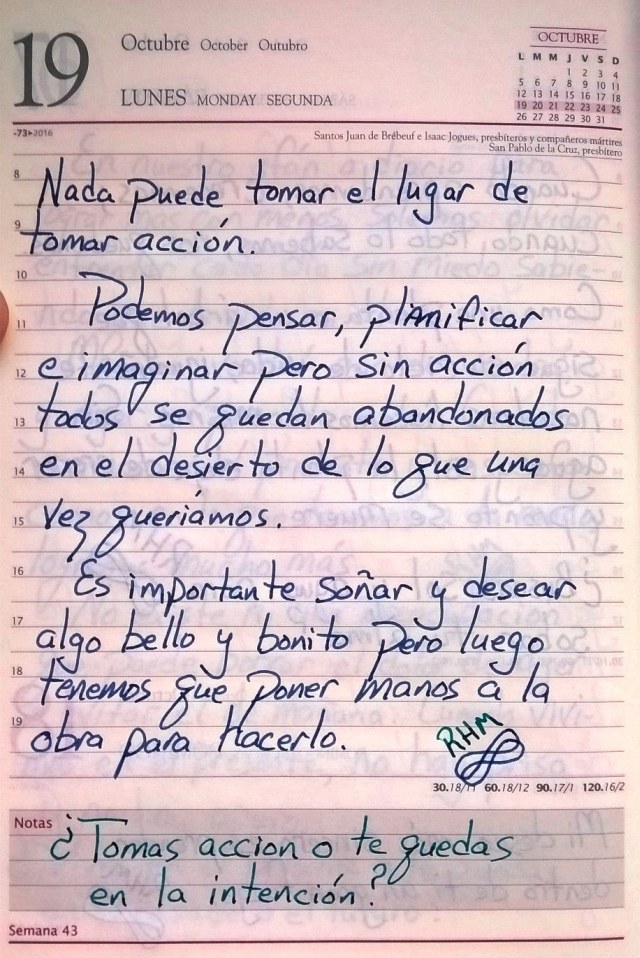 19
Octubre October Outubro
LUNES MONDAY SEGUNDA
OCTUBRE
L M M J V S D
1 2 3 4
5 6 7 8 9 10 11
12 13 14 15 16 17 18
19 20 21 22 23 24 25
26 27 28 29 30 31
-73>2016
Santos Juan de Brébeuf e Isaac Jogues, presbíteros y compañeros mártires
San Pablo de la Cruz, presbítero
8 Nada puede tomar el lugar de
9 tomar acción.
10
11 Podemos pensar, planificar
12 e imaginar pero sin acción
13 todos se quedan abandonados
14 en el desierto de lo que una
15 vez queríamos.
16 Es importante soñar y desear
17 algo bello y bonito pero luego
18 tenemos que poner manos a la
19 obra para hacerlo.
RHM
30.18/11 60.18/12 90.17/1 120.16/2
Notas ¿Tomas accion o te quedas
en la intención?
Semana 43